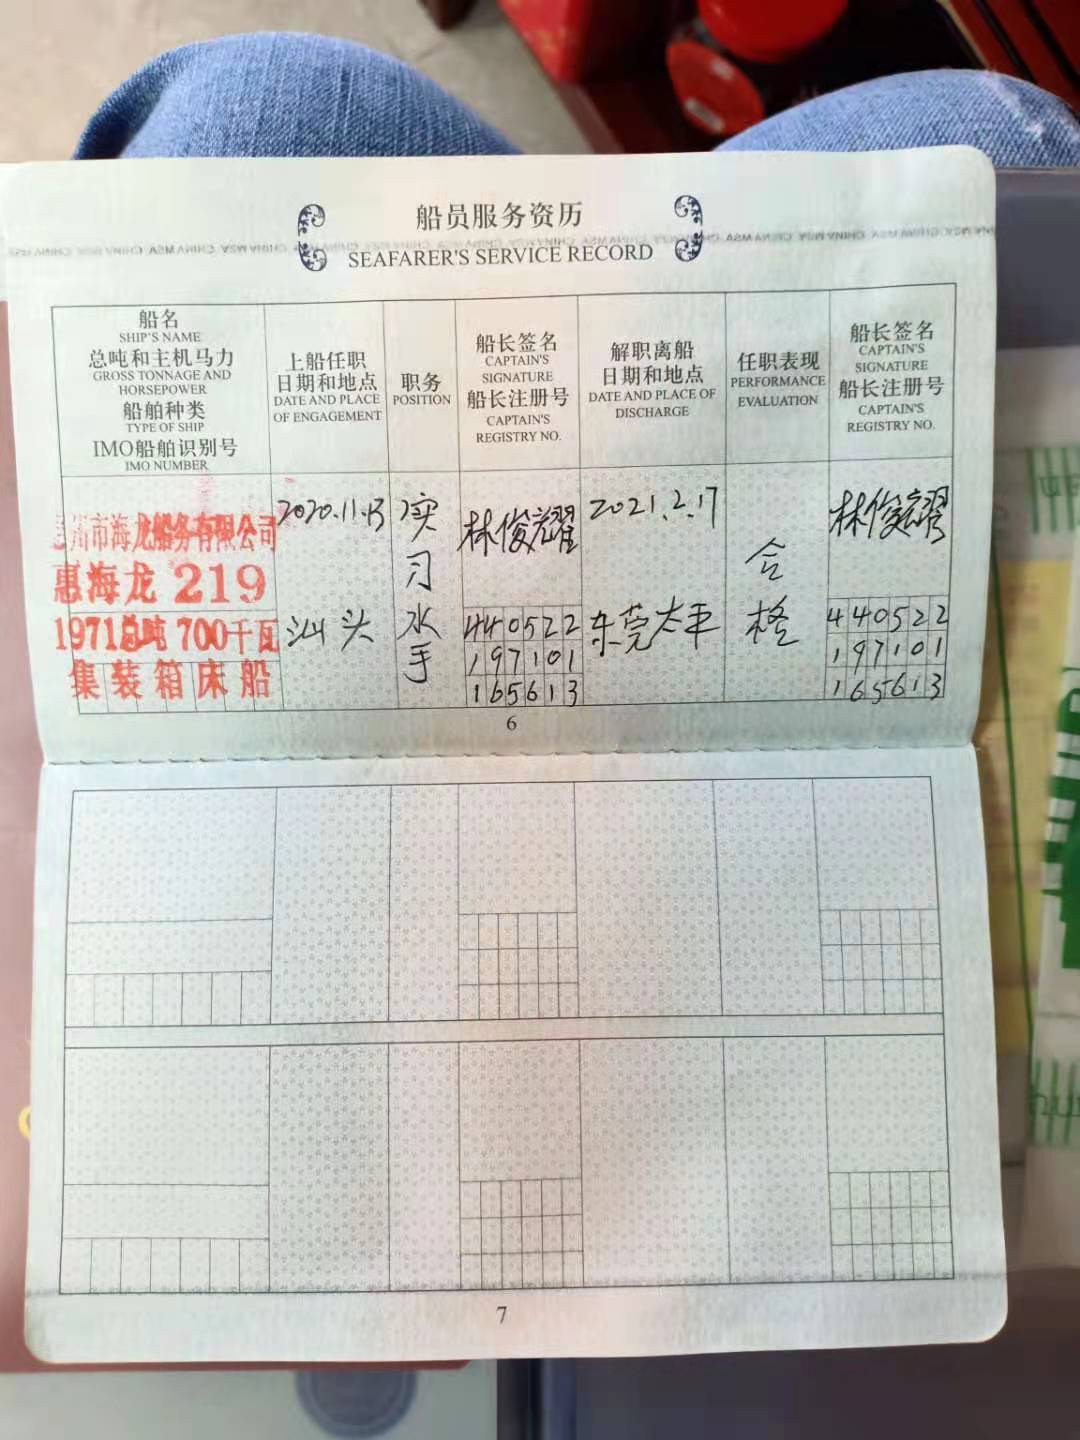 船员服务资历
CHINA MSA CHINA MSA CHINA MSA
SEAFARER'S SERVICE RECORD
船名
SHIP'S NAME
总吨和主机马力
GROSS TONNAGE AND
HORSEPOWER
船舶种类
TYPE OF SHIP
IMO船舶识别号
IMO NUMBER
上船任职
日期和地点
DATE AND PLACE
OF ENGAGEMENT
职务
POSITION
船长签名
CAPTAIN'S
SIGNATURE
船长注册号
CAPTAIN'S
REGISTRY NO.
解职离船
日期和地点
DATE AND PLACE OF
DISCHARGE
任职表现
PERFORMANCE
EVALUATION
船长签名
CAPTAIN'S
SIGNATURE
船长注册号
CAPTAIN'S
REGISTRY NO.
州市海龙船务有限公司
惠海龙 219
1971总吨 700千瓦
集装箱床船
2020.11.13
汕头
实
习
水
手
林俊耀
440522
197101
165613
2021.2.17
东莞太平
合
格
林俊耀
440522
197101
165613
6
7